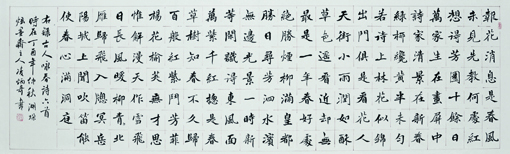 報花消息是春風
未見先教何處紅
想得芳園十餘日
萬家身在畫屏中
詩家清景在新春
綠柳才黃半未勻
若待上林花似錦
出門俱是看花人
天街小雨潤如酥
草色遙看近却無
最是一年春好處
絕勝煙柳滿皇都
勝日尋芳泗水濱
無邊光景一時新
等閒識得東風面
萬紫千紅總是春
草樹知春不久歸
百般紅紫鬥芳菲
楊花榆莢無才思
惟解漫天作雪飛
日長風暖柳青青北
雁歸飛入窅冥岳
陽城上聞吹笛能
使春心滿洞庭
右錄古人詠春詩六首
時在丁酉年仲秋湖
齋主人炳奇書